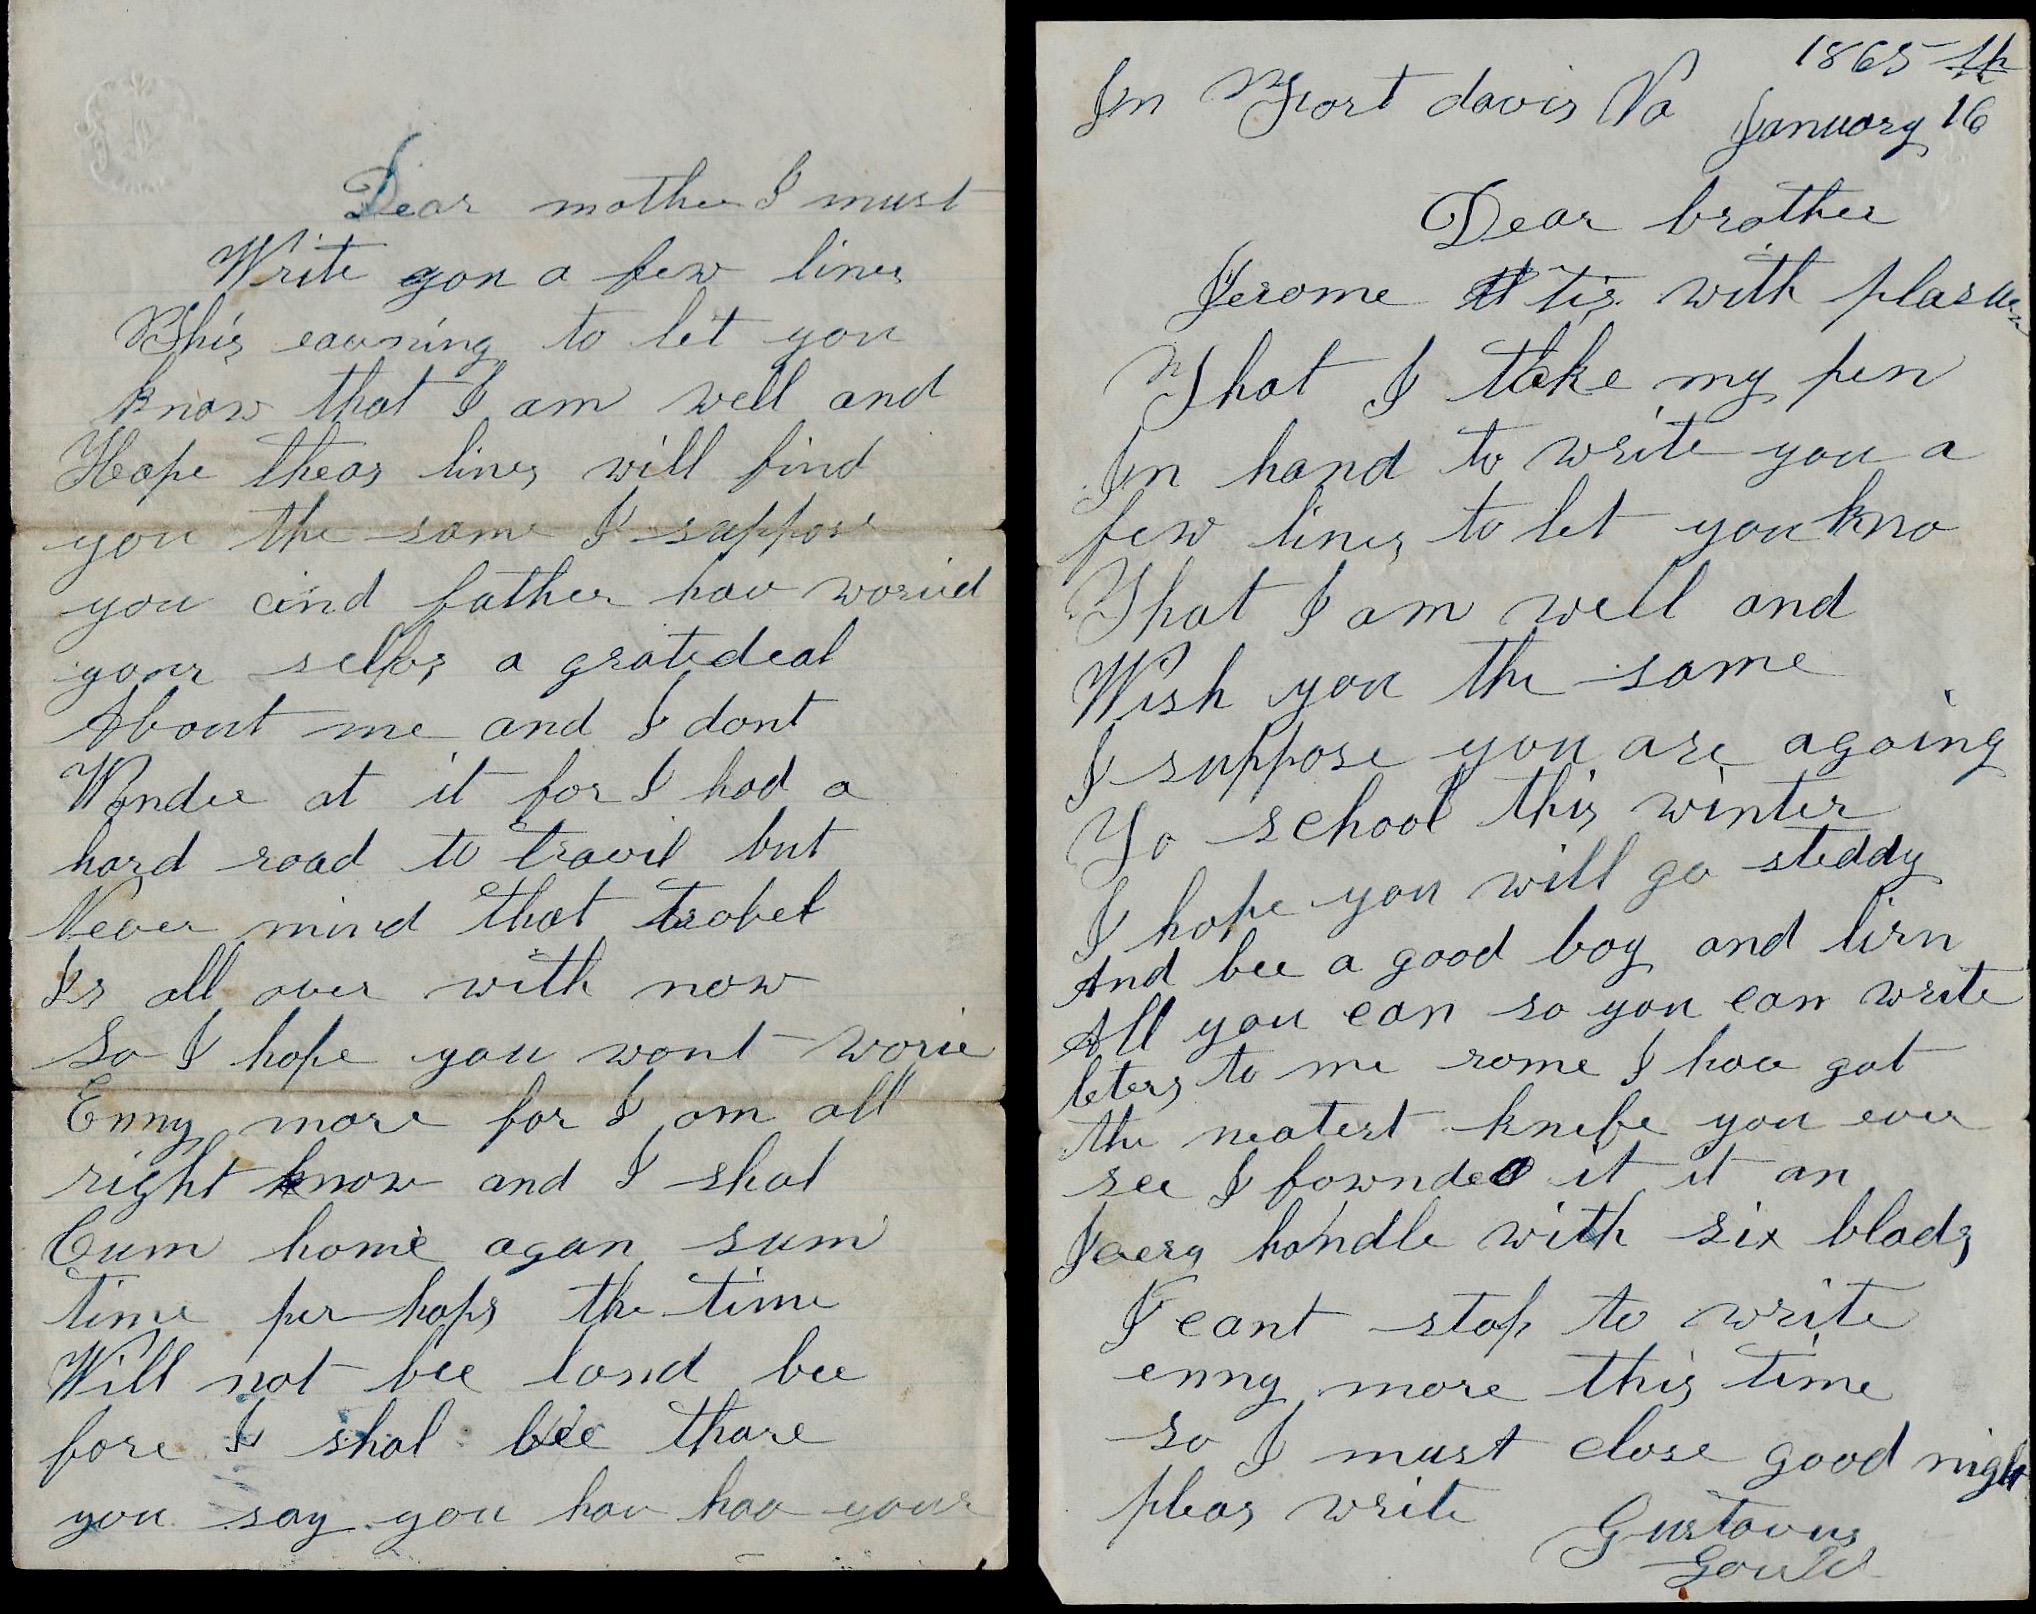 Dear mother I must
Write you a few lines
This eavning to let you
know that I am well and
Hope theas lines will find
you the same I suppose
you and father hav woried
your selfs a gratedeal
About me and I dont
Wonder at it for I had a
hard road to travil but
Never mind that trobel
Is all over with now
So I hope you wont worie
Enny more for I am all
right know and I shal
Cum home agan sum
time per haps the time
Will not bee lond bee
fore I shal bee thare
you say you hav hav your
1865 th
In Fort davis Va January 16
Dear brother
Jerome tis with plasure
That I take my pen
In hand to write you a
few lines to let you kno
That I am well and
Wish you the same
I suppose you are agoing
To school this winter
I hope you will go steddy
And bee a good boy and lirn
All you can so you can write
leters to me rome I hav got
the neatest knife you ever
see I fownded it it an
Iverg handle with six blads
I cant stop to write
enny more this time
so I must close good night
pleas write Gustavus
Gould